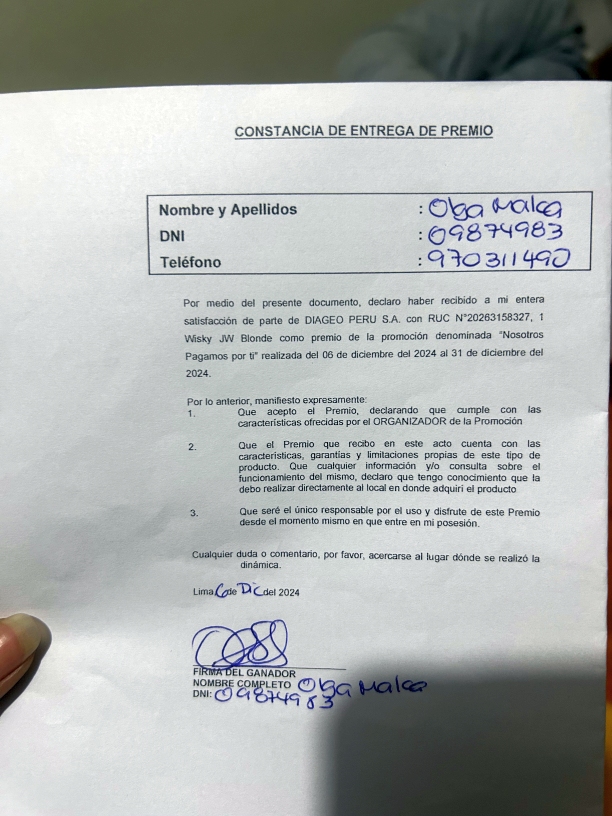 CONSTANCIA DE ENTREGA DE PREMIO
Nombre y Apellidos : Olga Malca
DNI : 09874983
Teléfono : 970311490
Por medio del presente documento, declaro haber recibido a mi entera
satisfacción de parte de DIAGEO PERU S.A. con RUC N°20263158327, 1
Wisky JW Blonde como premio de la promoción denominada "Nosotros
Pagamos por ti" realizada del 06 de diciembre del 2024 al 31 de diciembre del
2024.
Por lo anterior, manifiesto expresamente:
1. Que acepto el Premio, declarando que cumple con las
características ofrecidas por el ORGANIZADOR de la Promoción
2. Que el Premio que recibo en este acto cuenta con las
características, garantías y limitaciones propias de este tipo de
producto. Que cualquier información y/o consulta sobre el
funcionamiento del mismo, declaro que tengo conocimiento que la
debo realizar directamente al local en donde adquirí el producto
3. Que seré el único responsable por el uso y disfrute de este Premio
desde el momento mismo en que entre en mi posesión.
Cualquier duda o comentario, por favor, acercarse al lugar dónde se realizó la
dinámica.
Lima 6 de Dic del 2024
FIRMA DEL GANADOR
NOMBRE COMPLETO Olga Malca
DNI: 09874983